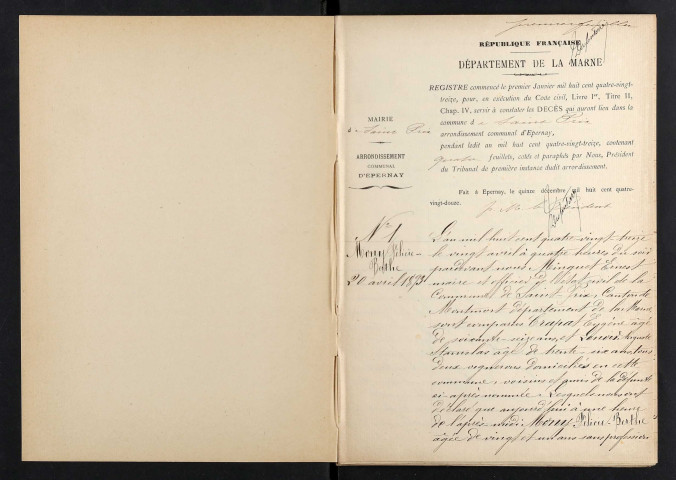 premier feuillet
RÉPUBLIQUE FRANÇAISE
DÉPARTEMENT DE LA MARNE
REGISTRE commencé le premier Janvier mil huit cent quatre-vingt-
treize, pour, en exécution du Code civil, Livre Ier, Titre II,
Chap. IV, servir à constater les DÉCÈS qui auront lieu dans la
commune d e Saint Prix
arrondissement communal d'Epernay,
pendant ledit an mil huit cent quatre-vingt-treize, contenant
quatre feuillets, cotés et paraphés par Nous, Président
du Tribunal de première instance dudit arrondissement.
Fait à Epernay, le quinze décembre mil huit cent quatre-
vingt-douze.
MAIRIE
d e Saint Prix
ARRONDISSEMENT
COMMUNAL
D'ÉPERNAY
No 1
Mony
Berthe
20 avril 1893
L'an mil huit cent quatre-vingt treize
le vingt avril à quatre heures du soir
pardevant nous Minguet Ernest
maire et officier de l'état civil de la
Commune de Saint-Prix, Canton de
Montmort département de la Marne,
sont comparus Crapat Eugène âgé
de soixante-seize ans et Auguste
Stanislas âgé de trente-six ans tous
deux vignerons domiciliés en cette
commune, voisins et amis de la défunte
ci-après nommée, lesquels nous ont
déclaré que aujourd'hui à une heure
de l'après-midi Mony Berthe
âgée de vingt et un ans sans profession